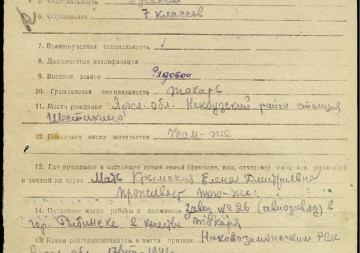 5. Национальность
6. Образование 7 классов
7. Военно-учетная специальность 1
8. Должностная квалификация
9. Военное звание Рядовой
10. Гражданская специальность токарь
11. Место рождения Яросл. обл. Некоузский район станция
Шестихино
12. Постоянное место жительства Там-же
13. Где проживает в настоящее время семья (фамилия, имя, отчество)
и точный их адрес Мать Крымская Елена Дмитриевна
проживает там-же.
14. Последнее место работы и должность завод № 26 (авиозавод) в
гор. Рыбинске в качестве токаря
15. Каким райгорвоенкоматом и места призван РВК